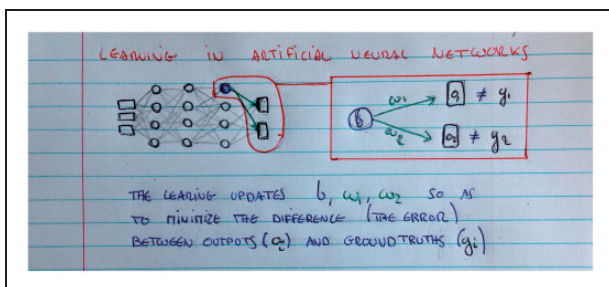 LEARNING IN ARTIFICIAL NEURAL NETWORKS
b ω1 a1 ≠ y1
ω2 a2 ≠ y2
THE LEARING UPDATES b, ω1, ω2 SO AS
TO MINIMIZE THE DIFFERENCE (THE ERROR)
BETWEEN OUTPUTS (ai) AND GROUND TRUTHS (yi)